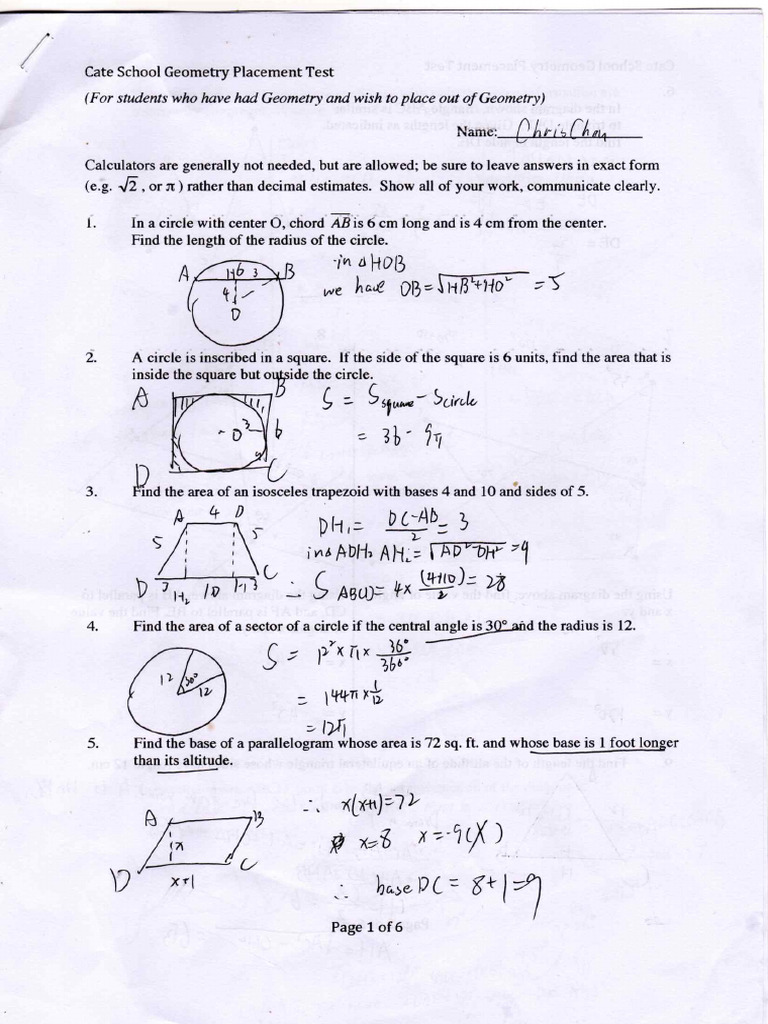 Cate School Geometry Placement Test
(For students who have had Geometry and wish to place out of Geometry)
Name: Chris
Calculators are generally not needed, but are allowed; be sure to leave answers in exact form
(e.g. √2 , or π ) rather than decimal estimates. Show all of your work, communicate clearly.
1. In a circle with center O, chord AB is 6 cm long and is 4 cm from the center.
Find the length of the radius of the circle.
A H 6 3 B
4
O
in △HOB
we have OB=√HB²+HO² =5
2. A circle is inscribed in a square. If the side of the square is 6 units, find the area that is
inside the square but outside the circle.
A B
O 3 6
D C
S = S square - S circle
= 36 - 9π
3. Find the area of an isosceles trapezoid with bases 4 and 10 and sides of 5.
A 4 D
5 5
D 3 H₂ 10 H 3 C
DH₁ = DC-AB/2 = 3
in △ADH₂ AH₂ = √AD²-DH² =4
∴ S ABCD = 4x (4+10)/2 = 28
4. Find the area of a sector of a circle if the central angle is 30° and the radius is 12.
12 30° 12
S = 12² x π x 36°/360°
= 144π x 1/12
= 12π
5. Find the base of a parallelogram whose area is 72 sq. ft. and whose base is 1 foot longer
than its altitude.
A B
x
D C
x+1
∴ x(x+1)=72
x=8 x=-9(X)
∴ base DC = 8+1=9
Page 1 of 6